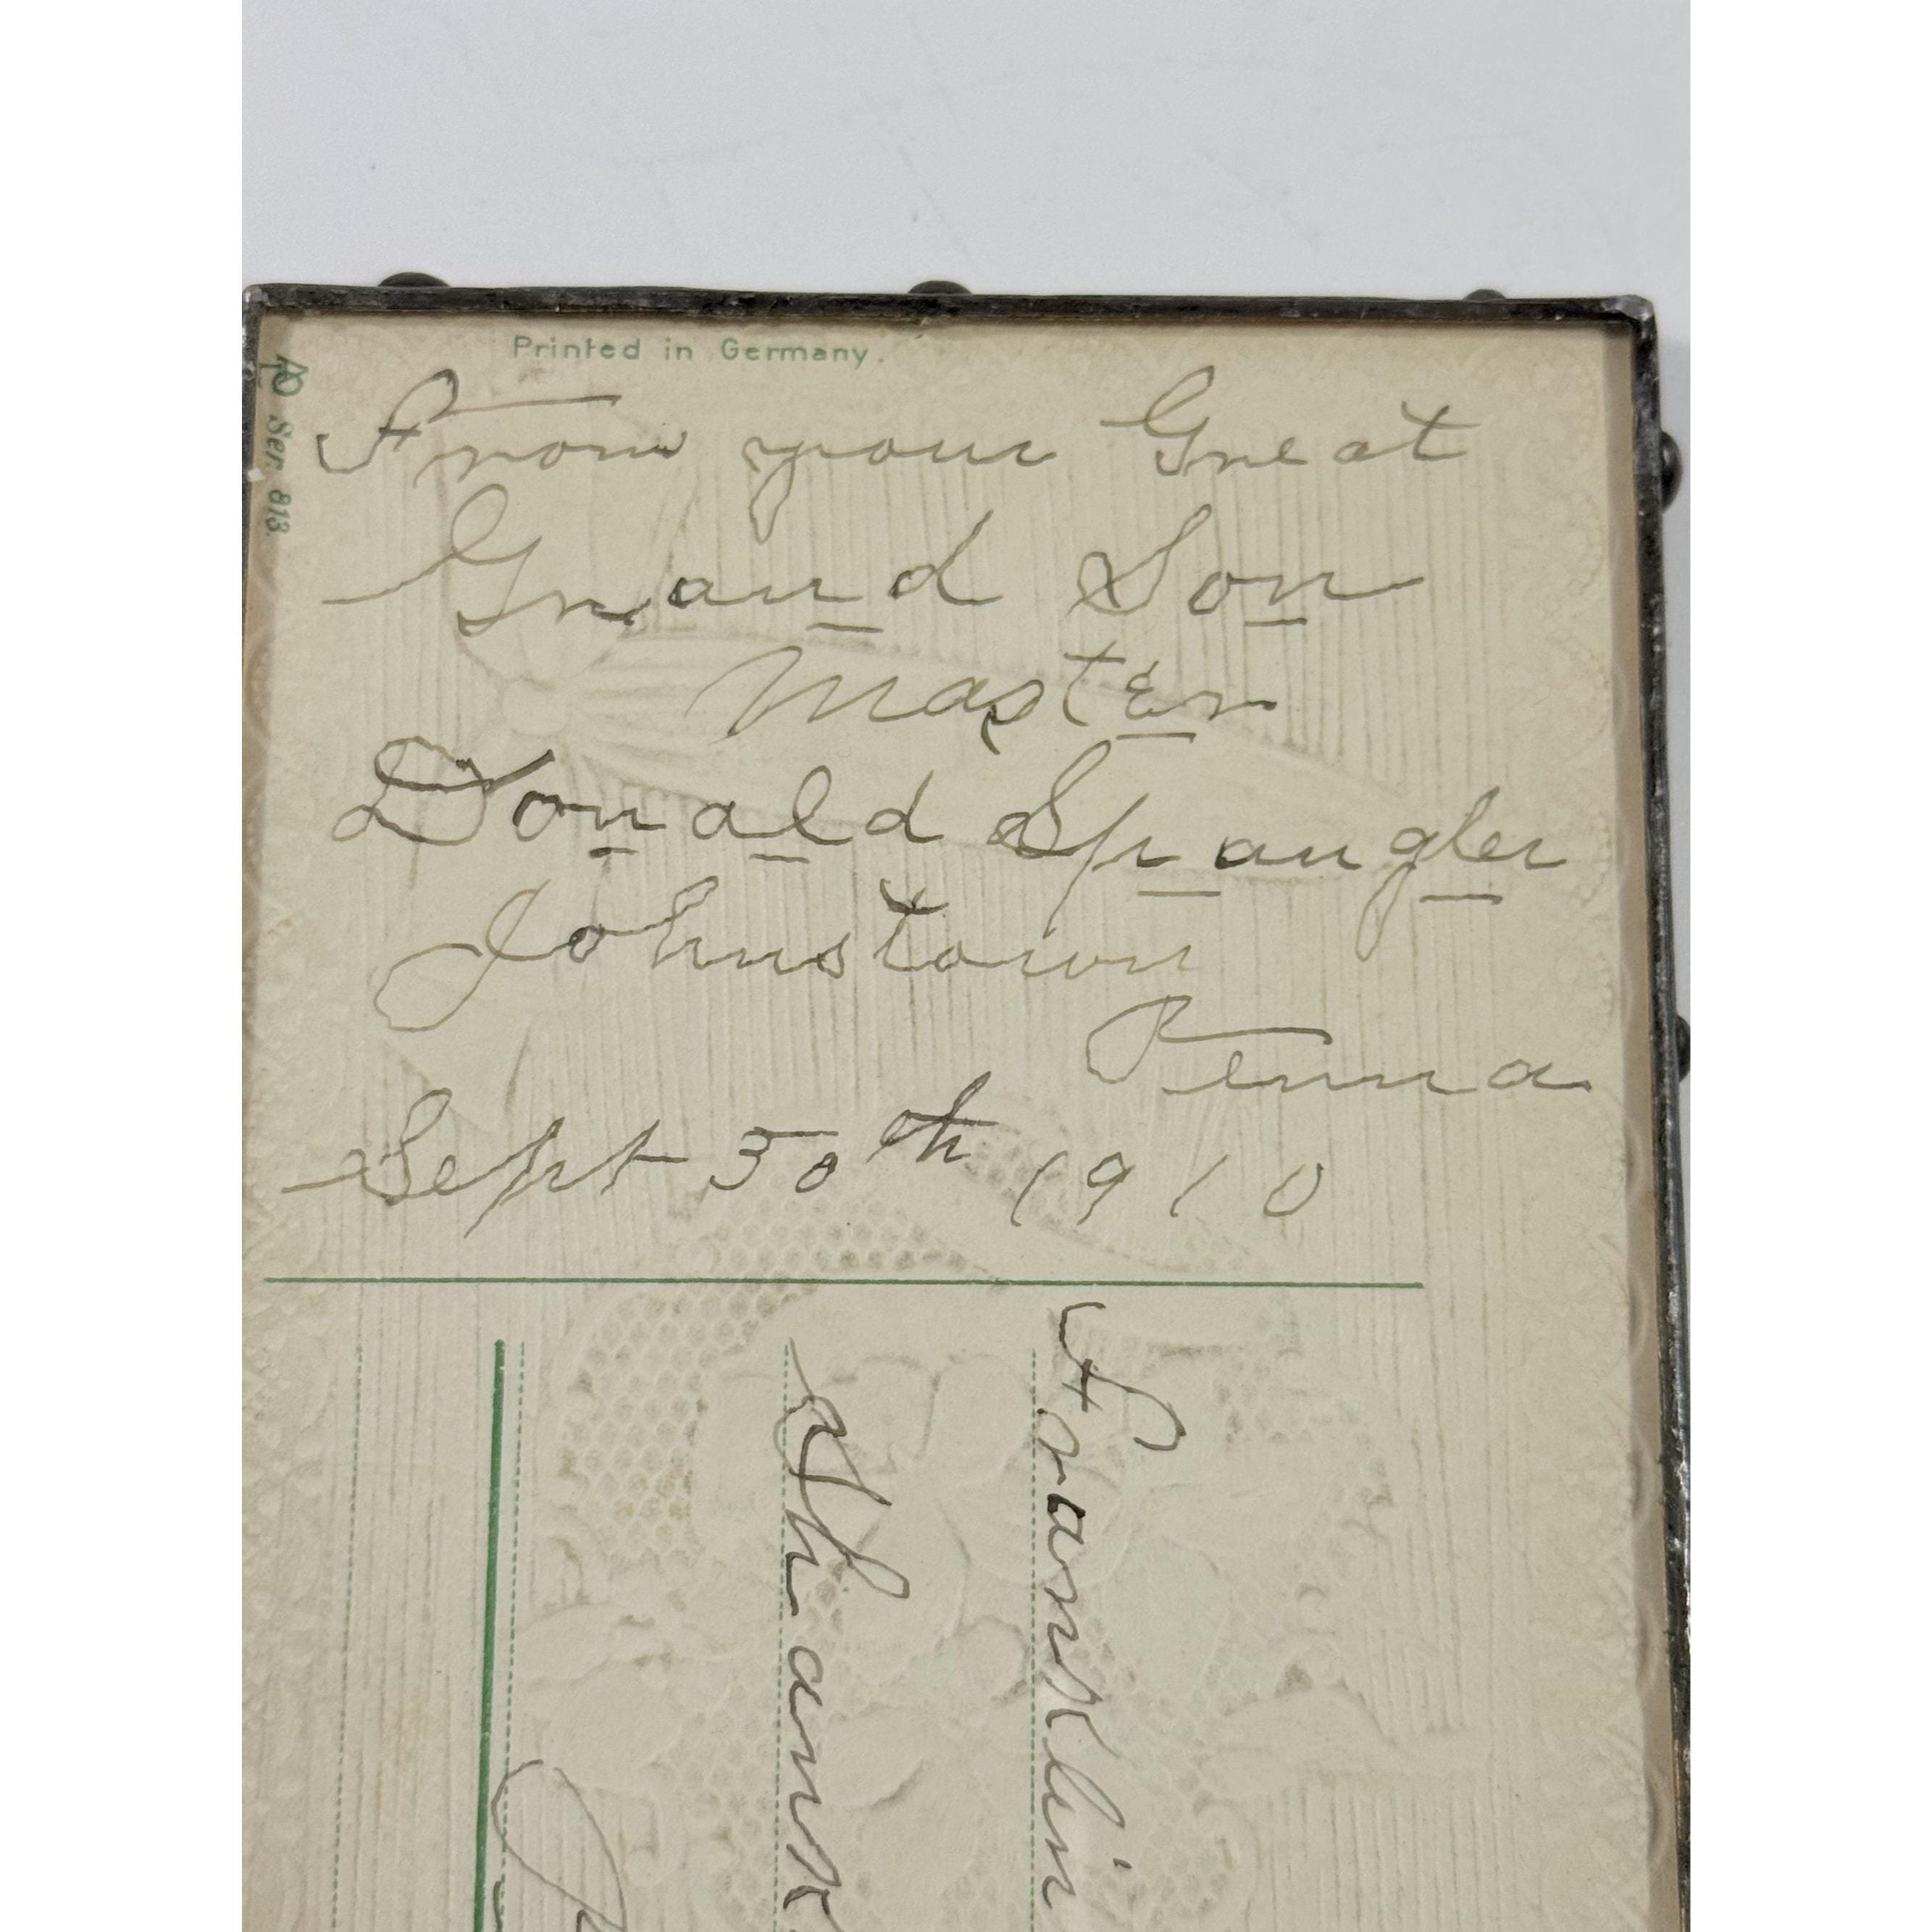 Printed in Germany.
Ser. 813.
From your Great
Grand Son
Master
Donald Spangler
Johnstown
Penna
Sept 30th 1910
Franklin
Shank